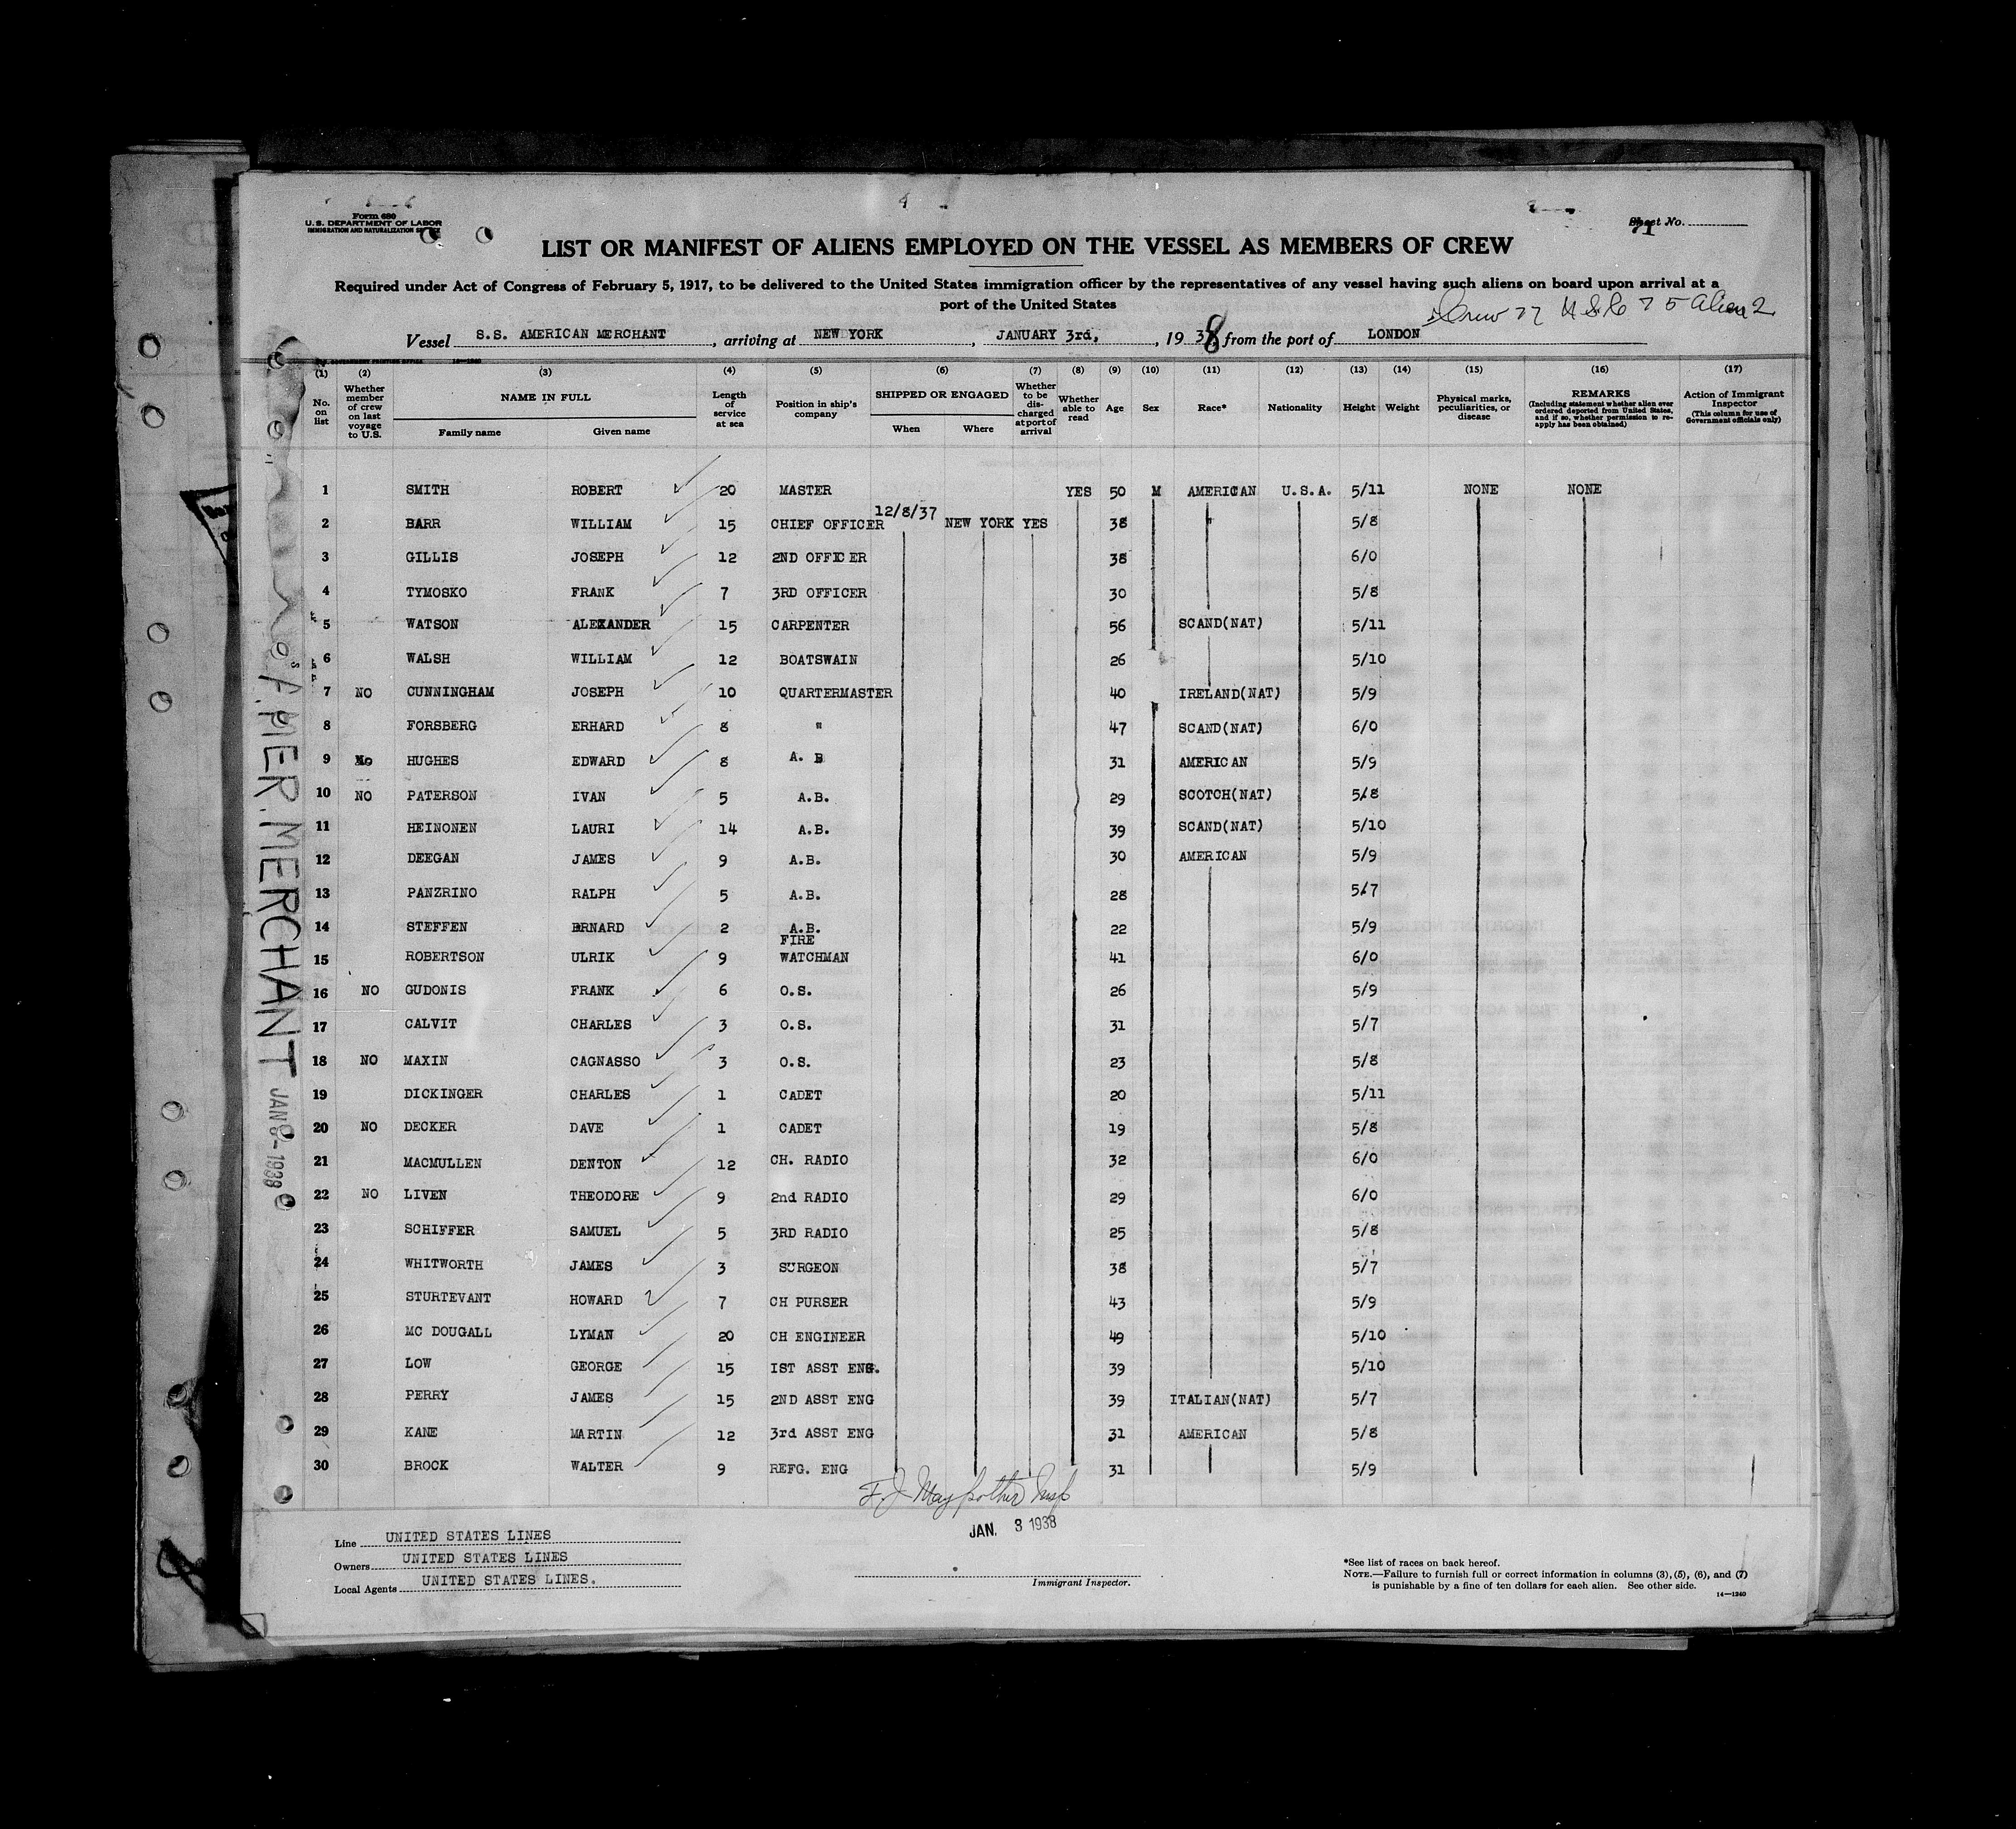 Form 680
U. S. DEPARTMENT OF LABOR
IMMIGRATION AND NATURALIZATION
Sheet No.
LIST OR MANIFEST OF ALIENS EMPLOYED ON THE VESSEL AS MEMBERS OF CREW
Required under Act of Congress of February 5, 1917, to be delivered to the United States immigration officer by the representatives of any vessel having such aliens on board upon arrival at a
port of the United States
Crew 77 U S C 75 Alien 2
Vessel S.S. AMERICAN MERCHANT, arriving at NEW YORK, JANUARY 3rd, , 1938 from the port of LONDON
(1) (2) (3) (4) (5) (6) (7) (8) (9) (10) (11) (12) (13) (14) (15) (16) (17)
No. on list
Whether member of crew on last voyage to U.S.
NAME IN FULL
Family name Given name
Length of service at sea
Position in ship's company
SHIPPED OR ENGAGED
When Where
Whether to be discharged at port of arrival
Whether able to read
Age
Sex
Race*
Nationality
Height
Weight
Physical marks, peculiarities, or disease
REMARKS
(Including statement whether alien ever ordered deported from United States, and if so, whether permission to reapply has been obtained)
Action of Immigrant Inspector
(This column for use of Government officials only)
1 SMITH ROBERT 20 MASTER YES 50 M AMERICAN U.S.A. 5/11 NONE NONE
2 BARR WILLIAM 15 CHIEF OFFICER 12/8/37 NEW YORK YES 38 5/8
3 GILLIS JOSEPH 12 2ND OFFICER 38 6/0
4 TYMOSKO FRANK 7 3RD OFFICER 30 5/8
5 WATSON ALEXANDER 15 CARPENTER 56 SCAND(NAT) 5/11
6 WALSH WILLIAM 12 BOATSWAIN 26 5/10
7 NO CUNNINGHAM JOSEPH 10 QUARTERMASTER 40 IRELAND(NAT) 5/9
8 FORSBERG ERHARD 8 " 47 SCAND(NAT) 6/0
9 No HUGHES EDWARD 8 A. B 31 AMERICAN 5/9
10 NO PATERSON IVAN 5 A.B. 29 SCOTCH(NAT) 5/8
11 HEINONEN LAURI 14 A.B. 39 SCAND(NAT) 5/10
12 DEEGAN JAMES 9 A.B. 30 AMERICAN 5/9
13 PANZRINO RALPH 5 A.B. 28 5/7
14 STEFFEN BRNARD 2 A.B. 22 5/9
15 ROBERTSON ULRIK 9 FIRE WATCHMAN 41 6/0
16 NO GUDONIS FRANK 6 O.S. 26 5/9
17 CALVIT CHARLES 3 O.S. 31 5/7
18 NO MAXIN CAGNASSO 3 O.S. 23 5/8
19 DICKINGER CHARLES 1 CADET 20 5/11
20 NO DECKER DAVE 1 CADET 19 5/8
21 MACMULLEN DENTON 12 CH. RADIO 32 6/0
22 NO LIVEN THEODORE 9 2nd RADIO 29 6/0
23 SCHIFFER SAMUEL 5 3RD RADIO 25 5/8
24 WHITWORTH JAMES 3 SURGEON 38 5/7
25 STURTEVANT HOWARD 7 CH PURSER 43 5/9
26 MC DOUGALL LYMAN 20 CH ENGINEER 49 5/10
27 LOW GEORGE 15 IST ASST ENG. 39 5/10
28 PERRY JAMES 15 2ND ASST ENG 39 ITALIAN(NAT) 5/7
29 KANE MARTIN 12 3rd ASST ENG 31 AMERICAN 5/8
30 BROCK WALTER 9 REFG. ENG 31 5/9
AMER. MERCHANT JAN 3-1938
JAN. 3 1938
Immigrant Inspector.
Line UNITED STATES LINES
Owners UNITED STATES LINES
Local Agents UNITED STATES LINES.
*See list of races on back hereof.
NOTE.—Failure to furnish full or correct information in columns (3), (5), (6), and (7)
is punishable by a fine of ten dollars for each alien. See other side.
14—1240